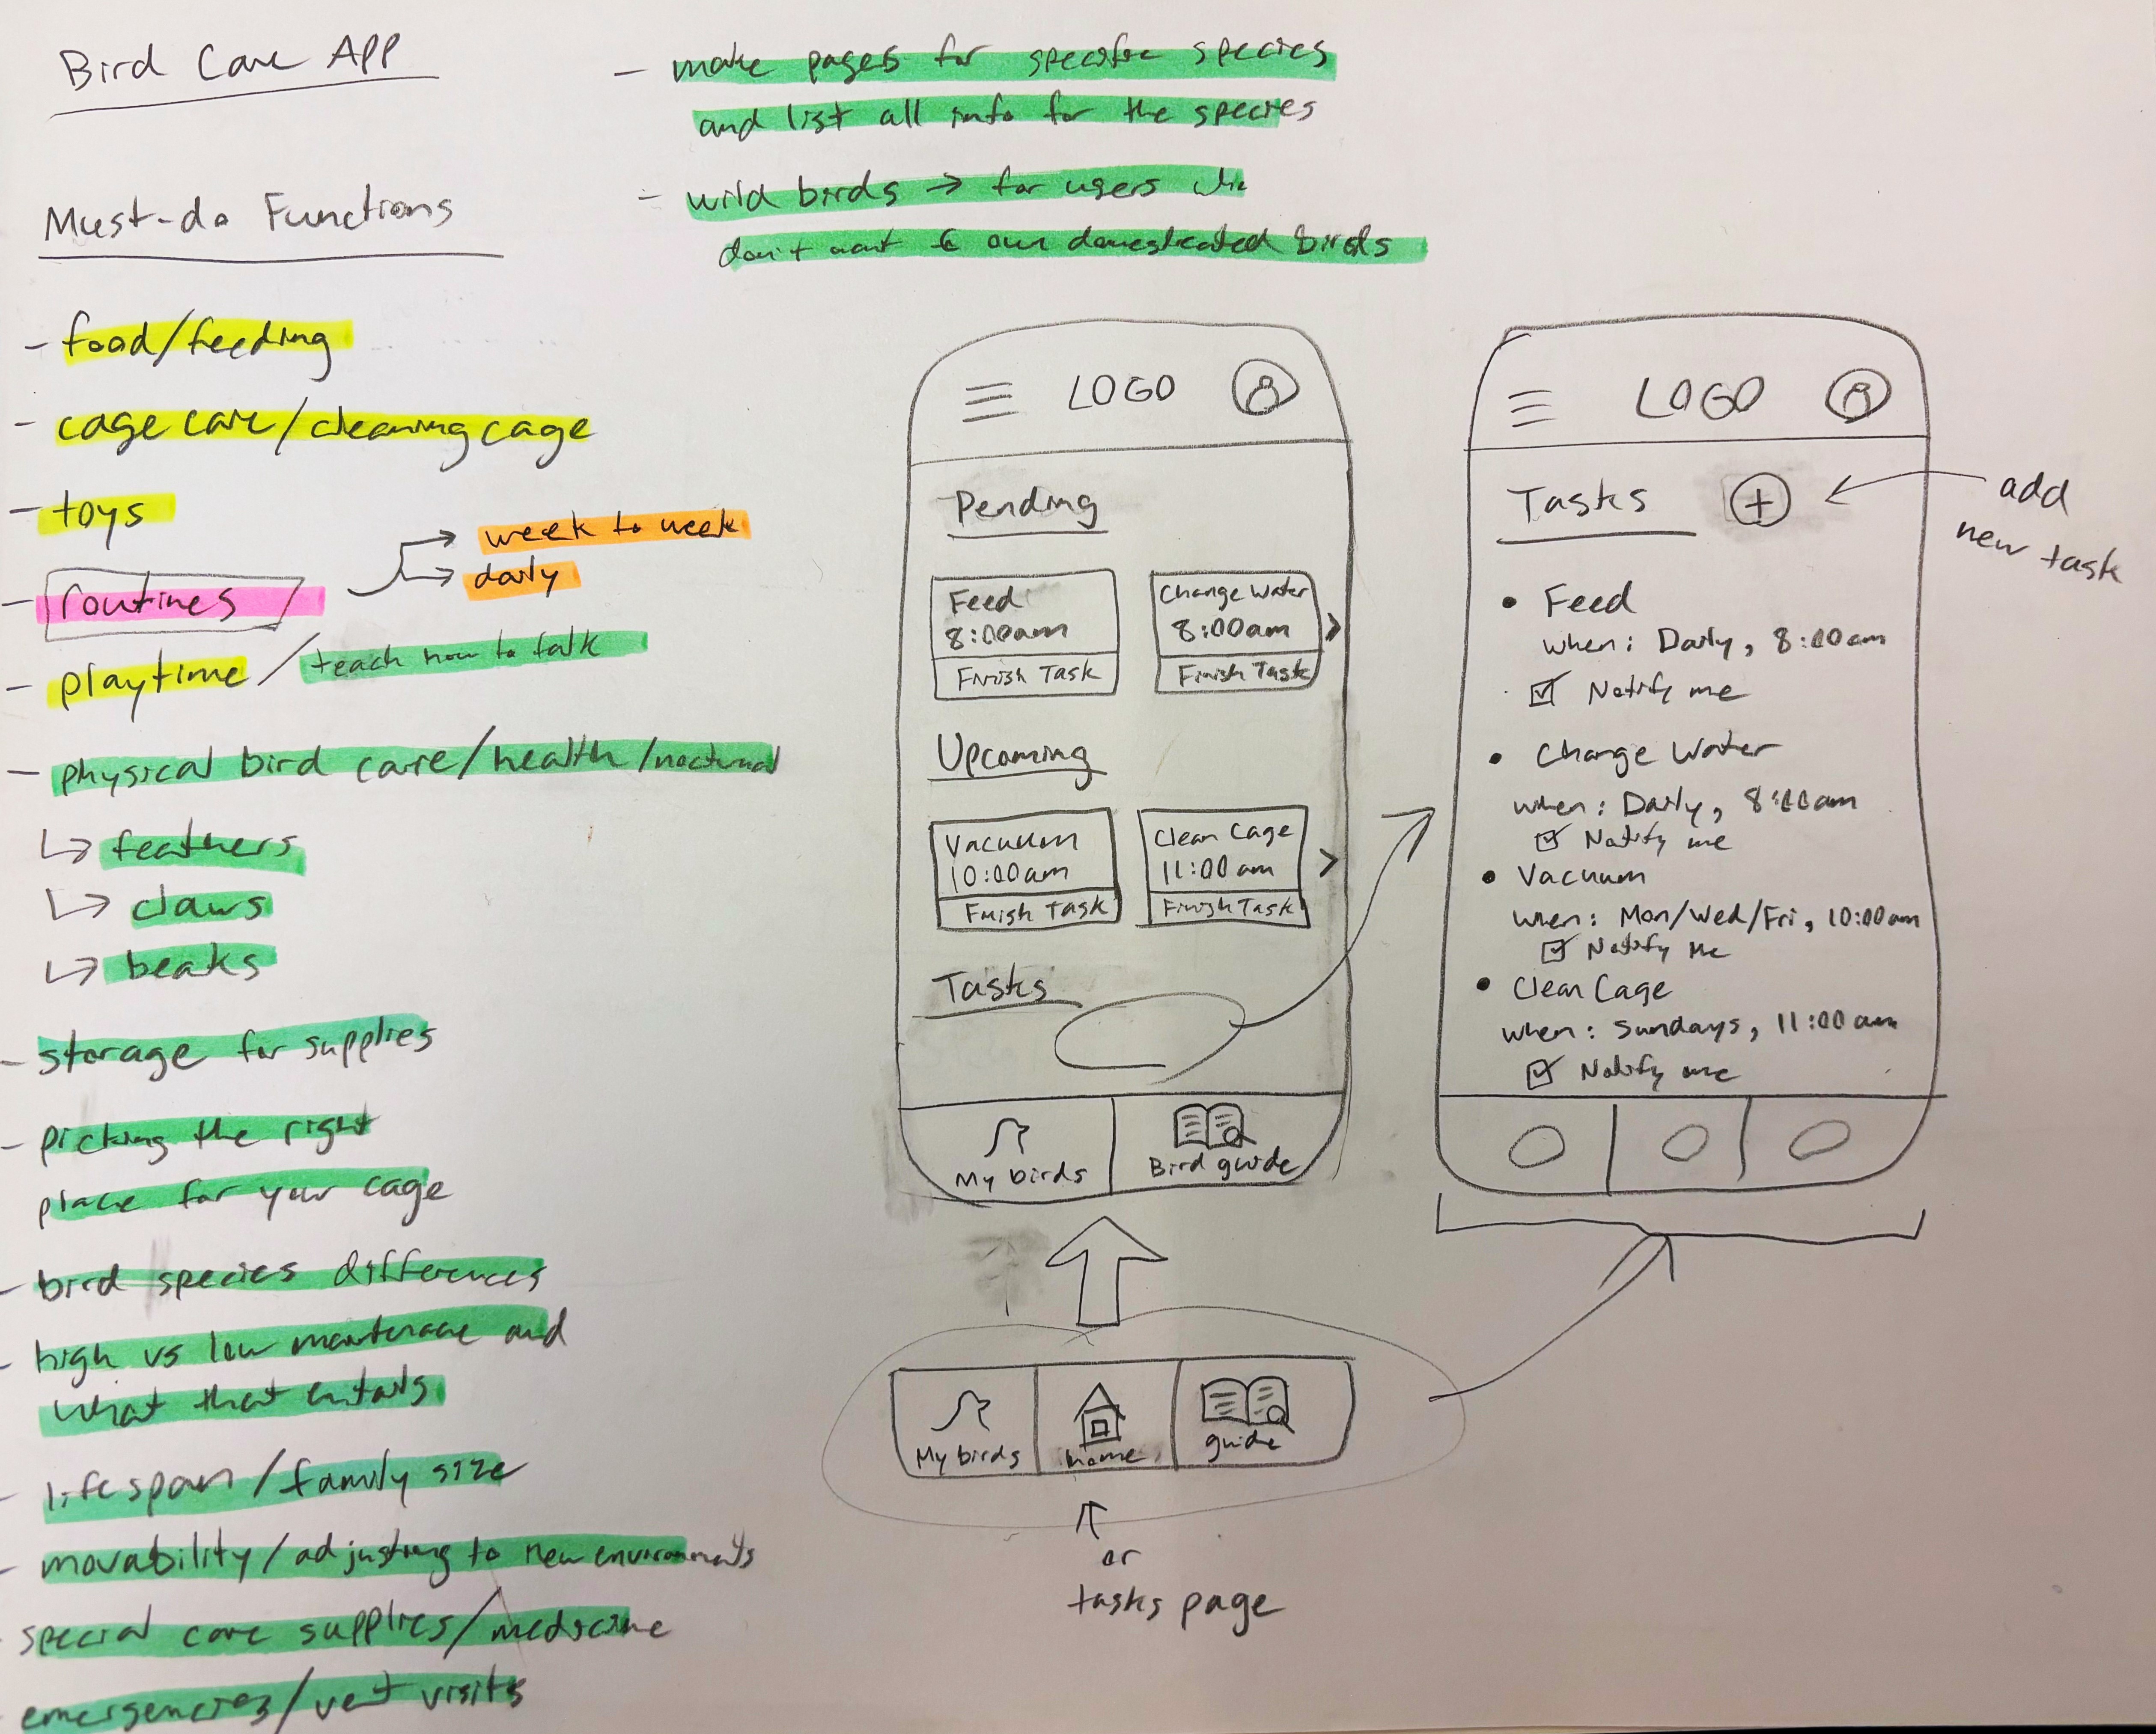 Bird Care App
Must-do Functions
- food/feeding
- cage care/cleaning cage
- toys
- routines
→ week to week
→ daily
- playtime / teach how to talk
- physical bird care/health/nocturnal
↳ feathers
↳ claws
↳ beaks
- storage for supplies
- picking the right
place for your cage
- bird species differences
- high vs low maintenace and
what that entails
- lifespan/family size
- movability/adjusting to new environments
- special care supplies/medicine
- emergencies/vet visits
- make pages for specific species
and list all info for the species
- wild birds → for users who
don't want to own domesticated birds
LOGO
Pending
Feed
8:00am
Finish Task
Change Water
8:00am
Finish Task
>
Upcoming
Vacuum
10:00am
Finish Task
Clean Cage
11:00am
Finish Task
>
Tasks
My birds
Bird guide
My birds
home
guide
or
tasks page
LOGO
Tasks +
add
new task
• Feed
when: Daily, 8:00am
☑ Notify me
• Change Water
when: Daily, 8:00am
☑ Notify me
• Vacuum
when: Mon/Wed/Fri, 10:00am
☑ Notify me
• Clean Cage
when: Sundays, 11:00am
☑ Notify me